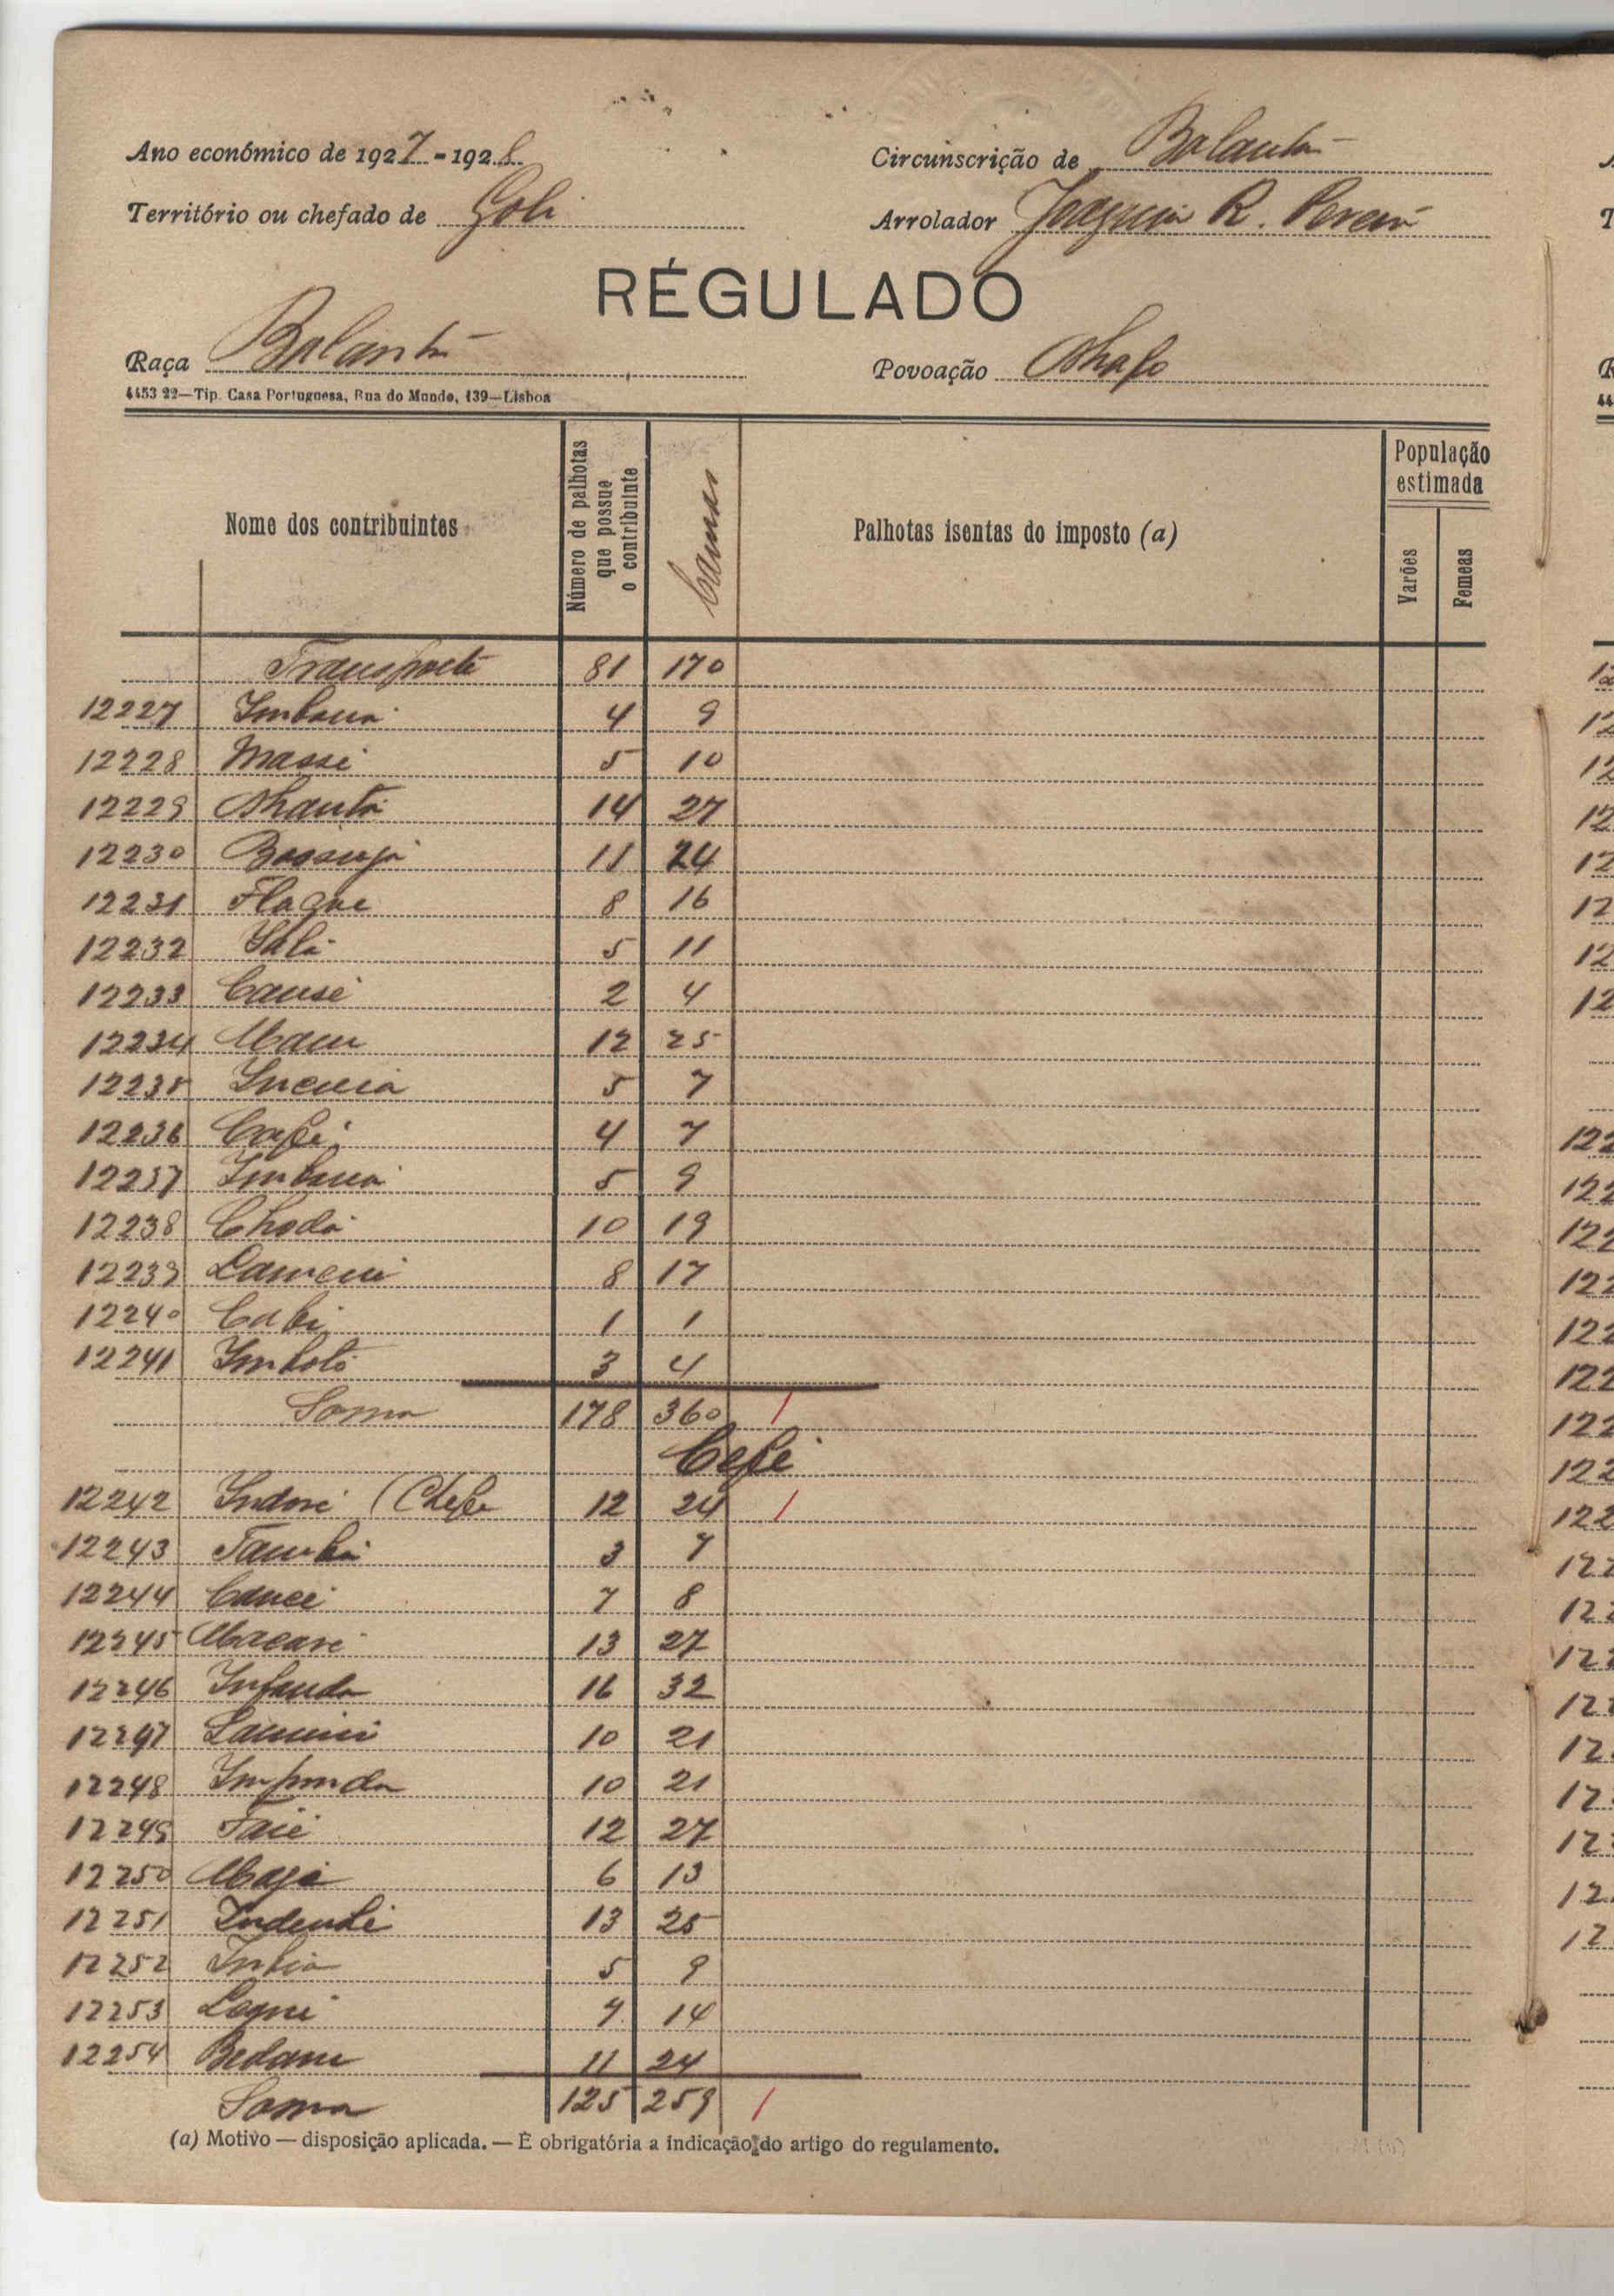 Ano económico de 1927-1928
Circunscrição de Balanta
Território ou chefado de Goli
Arrolador Joaquim R. Pereira
RÉGULADO
Raça Balanta
Povoação
4453 22—Tip. Casa Portuguesa, Rua do Mundo, 139—Lisboa
Nome dos contribuintes
Número de palhotas que possue o contribuinte
Camas
Palhotas isentas do imposto (a)
População estimada
Varões
Femeas
Transporte 81 170
12227 Imbana 4 9
12228 Massi 5 10
12229 14 27
12230 11 24
12231 Flaque 8 16
12232 Sala 5 11
12233 Causé 2 4
12234 12 25
12235 5 7
12236 Cufi 4 7
12237 Imbana 5 9
12238 Choda 10 19
12239 8 17
12240 Cabi 1 1
12241 Imboto 3 4
Soma 178 360
Cefe
12242 Indoré (Chefe 12 24
12243 Tamba 3 7
12244 7 8
12245 13 27
12246 Infanda 16 32
12247 Lamini 10 21
12248 Imponda 10 21
12249 Taié 12 27
12250 6 13
12251 13 25
12252 Imbia 5 9
12253 7 14
12254 Bedam 11 24
Soma 125 259
(a) Motivo — disposição aplicada. — É obrigatória a indicação do artigo do regulamento.